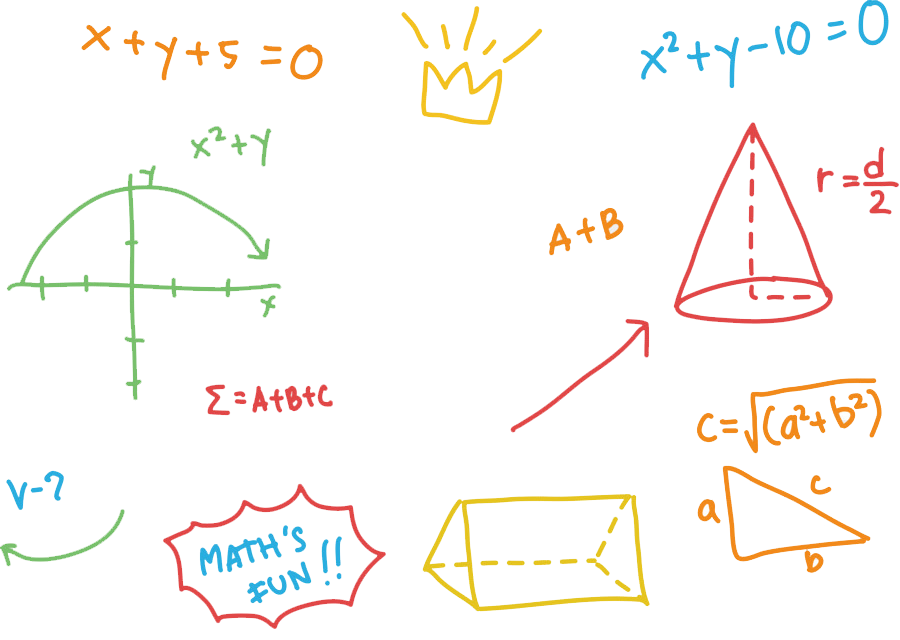 x+y+5=0
x²+y-10=0
x²+y
y
x
r=d/2
A+B
Σ=A+B+C
c=√(a²+b²)
v-?
MATH'S
FUN!!
a
c
b